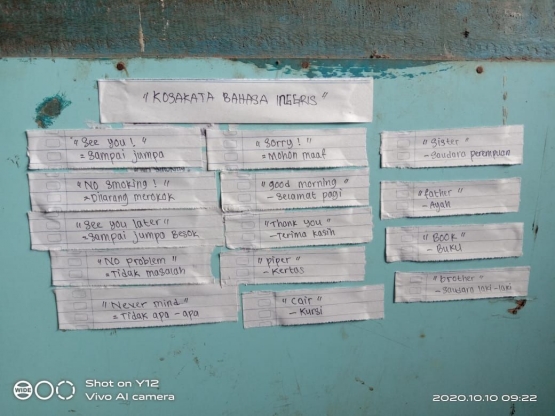 " KOSAKATA BAHASA INGGRIS "
" See you ! "
= Sampai jumpa
" NO smoking ! "
= Dilarang merokok
" See you later "
= Sampai jumpa Besok
" NO problem "
= Tidak masalah
" Never mind "
= Tidak apa - apa
" Sorry ! "
= Mohon maaf
" good morning "
- Selamat pagi
" Thank you "
- Terima kasih
" piper "
- Kertas
" cair "
- Kursi
" Sister "
- Saudara perempuan
" father "
- Ayah
" BOOK "
- Buku
" brother "
- Saudara laki - laki
WIDE
Shot on Y12
Vivo AI camera
2020.10.10 09:22